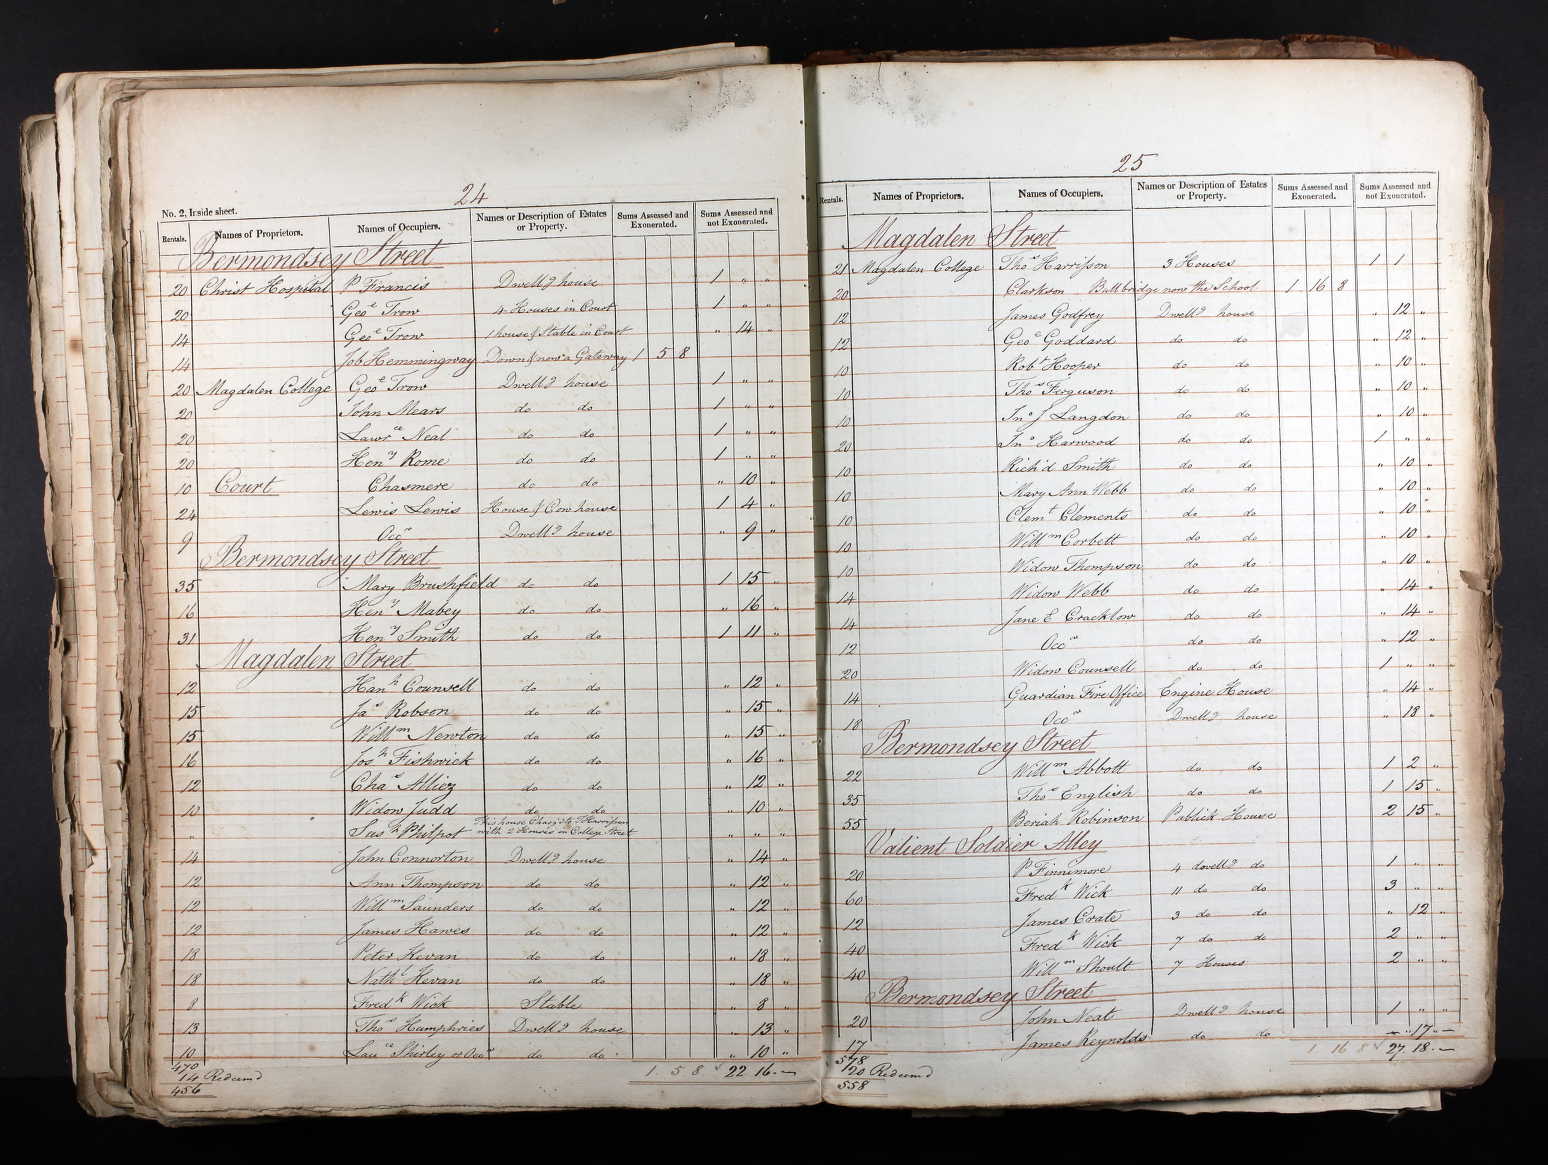 24
No. 2, Inside sheet.
Rentals. Names of Proprietors. Names of Occupiers. Names or Description of Estates or Property. Sums Assessed and Exonerated. Sums Assessed and not Exonerated.
Bermondsey Street
20 Christ Hospital P Francis Dwellg house 1 " "
20 Geoe Trow 4 Houses in Court 1 " "
14 Geoe Trow 1 house & Stable in Court " 14 "
14 Job Hemmingway Down & now a Gateway 1 5 8
20 Magdalen College Geoe Trow Dwellg house 1 " "
20 John Mears do do 1 " "
20 Lawrce Neal do do 1 " "
20 Heny Rome do do 1 " "
10 Court Chasmere do do " 10 "
24 Lewis Lewis House & Cow house 1 4 "
9 Occr Dwellg house " 9 "
Bermondsey Street
35 Mary Brushfield do do 1 15 "
16 Heny Mabey do do " 16 "
31 Heny Smith do do 1 11 "
Magdalen Street
12 Hanh Counsell do do " 12 "
15 Jas Robson do do " 15 "
15 Willm Newton do do " 15 "
16 Josh Fishwick do do " 16 "
12 Chas Alliez do do " 12 "
10 Widow Judd do do " 10 "
" Sush Philpot This house Charg'd to T Harrisson with 2 Houses in College Street " " "
14 John Connorton Dwellg house " 14 "
12 Ann Thompson do do " 12 "
12 Willm Saunders do do " 12 "
12 James Hawes do do " 12 "
18 Peter Kevan do do " 18 "
18 Nathl Kevan do do " 18 "
8 Fredk Wick Stable " 8 "
13 Thos Humphries Dwellg house " 13 "
10 Lauce Shirley or Occr do do " 10 "
470 1 5 8 22 16 -
14 Redeemd
456
25
Rentals. Names of Proprietors. Names of Occupiers. Names or Description of Estates or Property. Sums Assessed and Exonerated. Sums Assessed and not Exonerated.
Magdalen Street
21 Magdalen College Thos Harrisson 3 Houses 1 1
20 Clarkson Bullbridge now the School 1 16 8
12 James Godfrey Dwellg house " 12 "
12 Geoe Goddard do do " 12 "
10 Robt Hooper do do " 10 "
10 Thos Ferguson do do " 10 "
10 Jno J Langdon do do " 10 "
20 Jno Harwood do do 1 " "
10 Rich'd Smith do do " 10 "
10 Mary Ann Webb do do " 10 "
10 Clemt Clements do do " 10 "
10 Willm Corbett do do " 10 "
10 Widow Thompson do do " 10 "
14 Widow Webb do do " 14 "
14 Jane E Cracklow do do " 14 "
12 Occr do do " 12 "
20 Widow Counsell do do 1 " "
14 Guardian Fire Office Engine House " 14 "
18 Occr Dwellg house " 18 "
Bermondsey Street
22 Willm Abbott do do 1 2 "
35 Thos English do do 1 15 "
55 Beriah Robinson Publick House 2 15 "
Valient Soldier Alley
20 P Finnimore 4 dwellg do 1 " "
60 Fredk Wick 11 do do 3 " "
12 James Crate 3 do do " 12 "
40 Fredk Wick 7 do do 2 " "
40 Willm Shoult 7 Houses 2 " "
Bermondsey Street
20 John Neat Dwellg house 1 " "
17 James Reynolds do do " 17 -
578 1 16 8 27 18 -
20 Redeemd
558